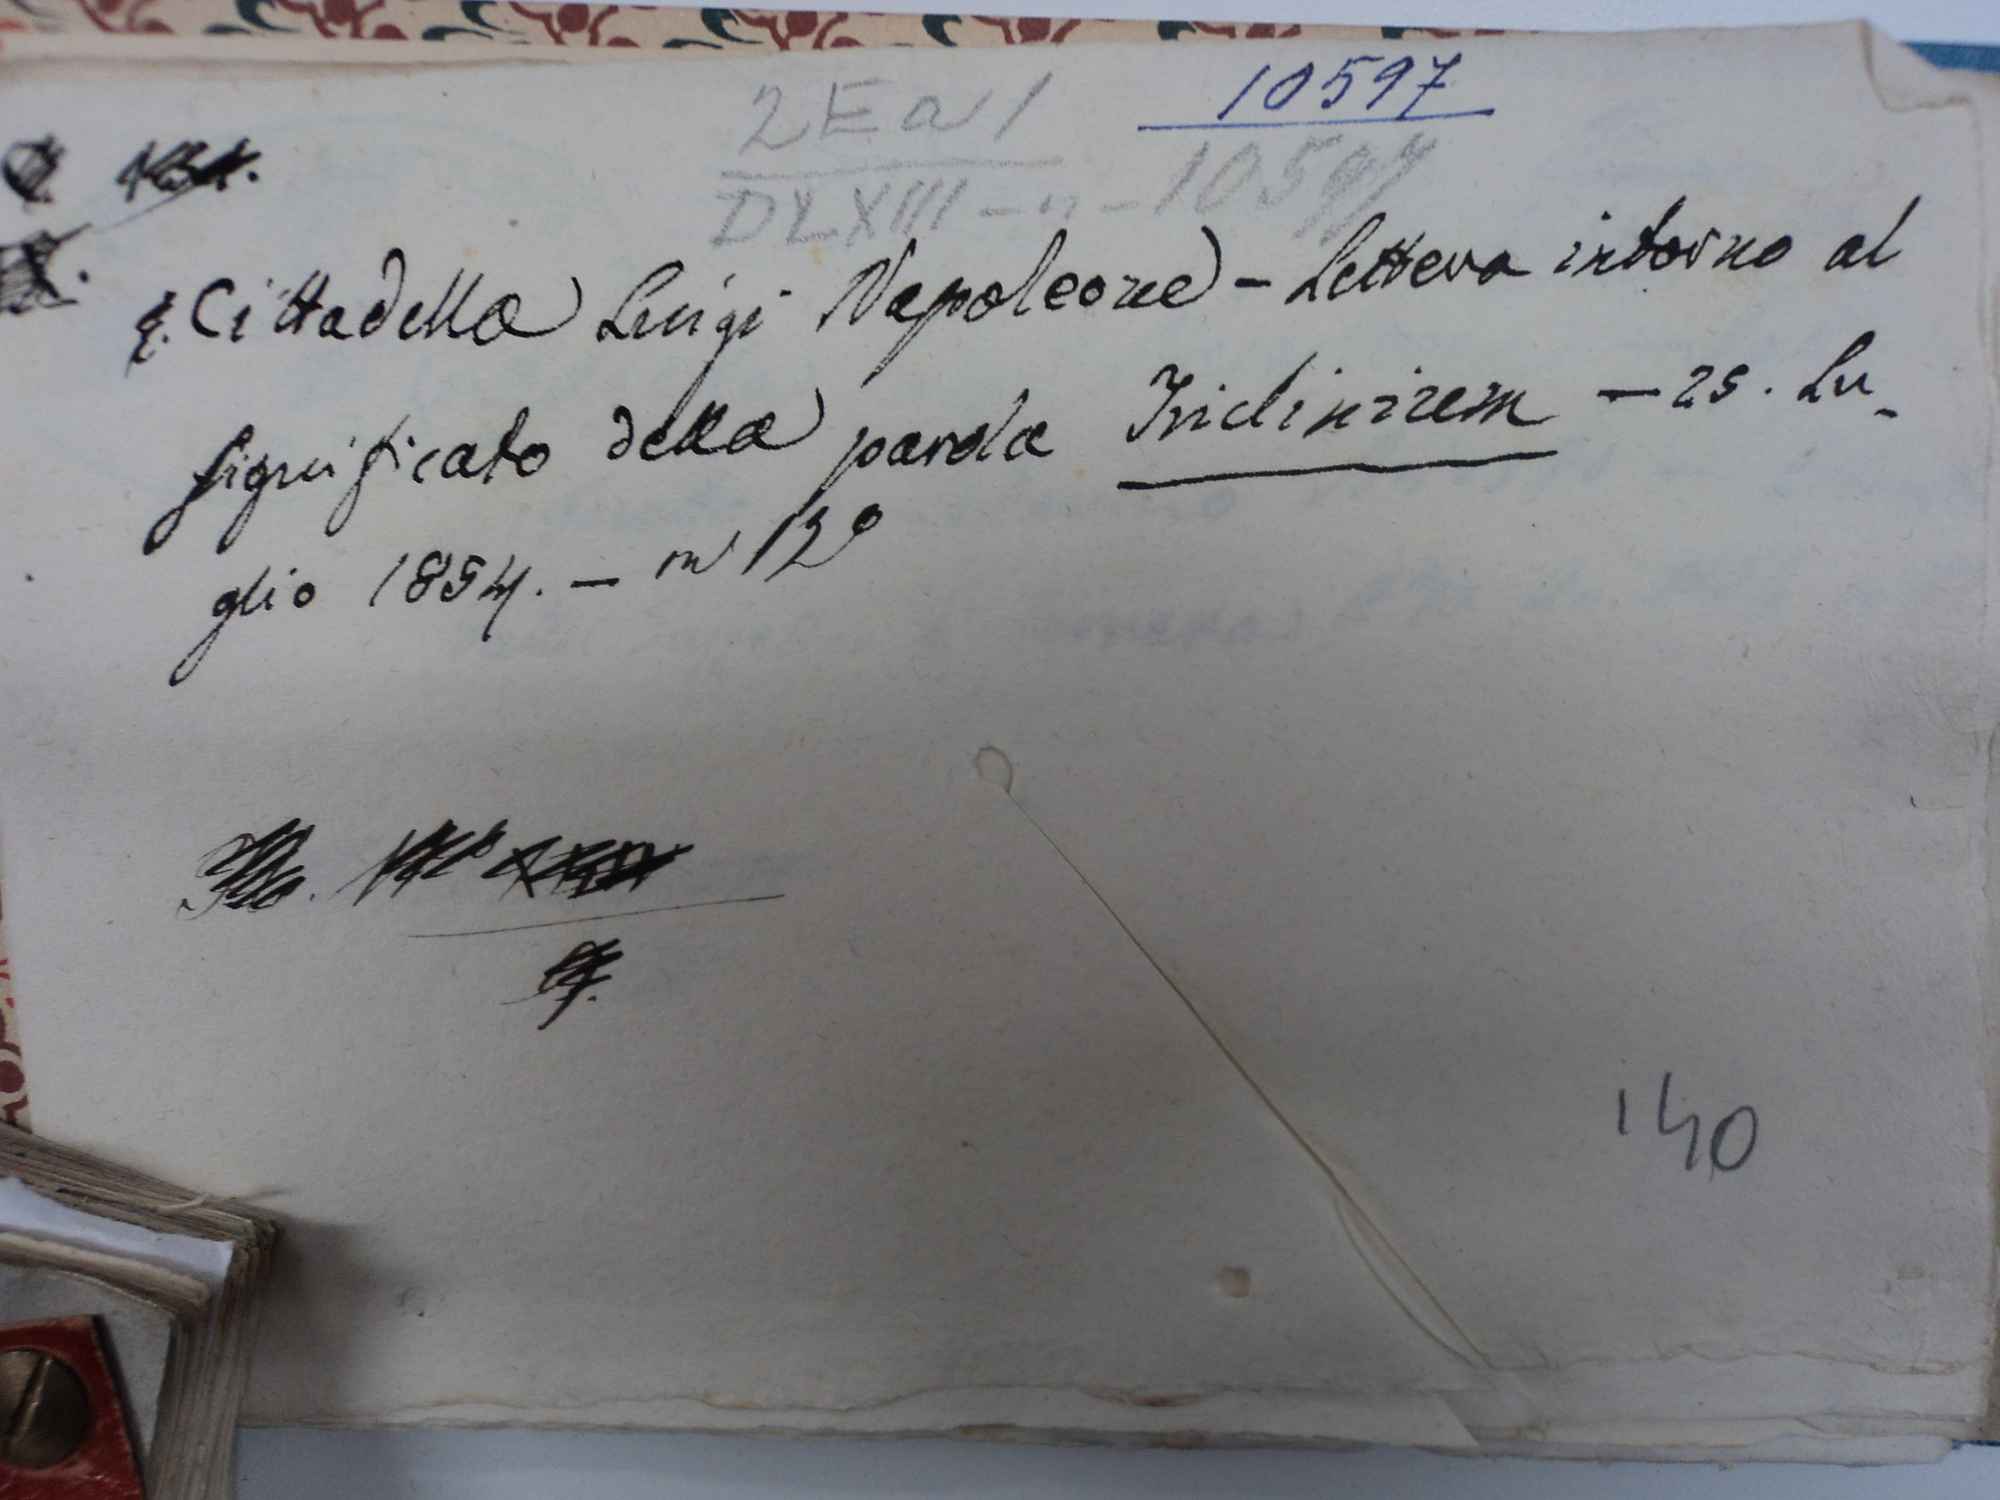 10597
2 E a 1
DLXIII - n - 10597
Cittadella Luigi Napoleone - Lettera intorno al
significato della parola - 25. Lu-
glio 1854. - in 12º
140